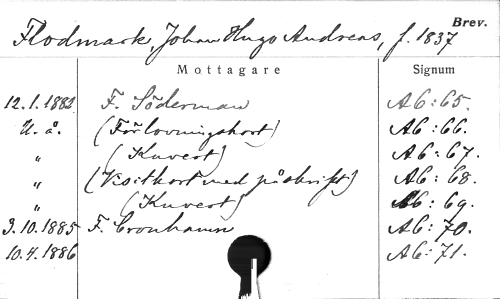 Brev.
Flodmark, Johan Hugo Andreas, f. 1837
Mottagare Signum
12.1.1882 F. Söderman Ab:65.
U.å. (Förlovningskort) Ab:66.
" (Kuvert) Ab:67.
" (Visitkort med påskrift) Ab:68.
" (Kuvert) Ab:69.
3.10.1885 F. Cronhamn Ab:70.
10.4.1886 Ab:71.